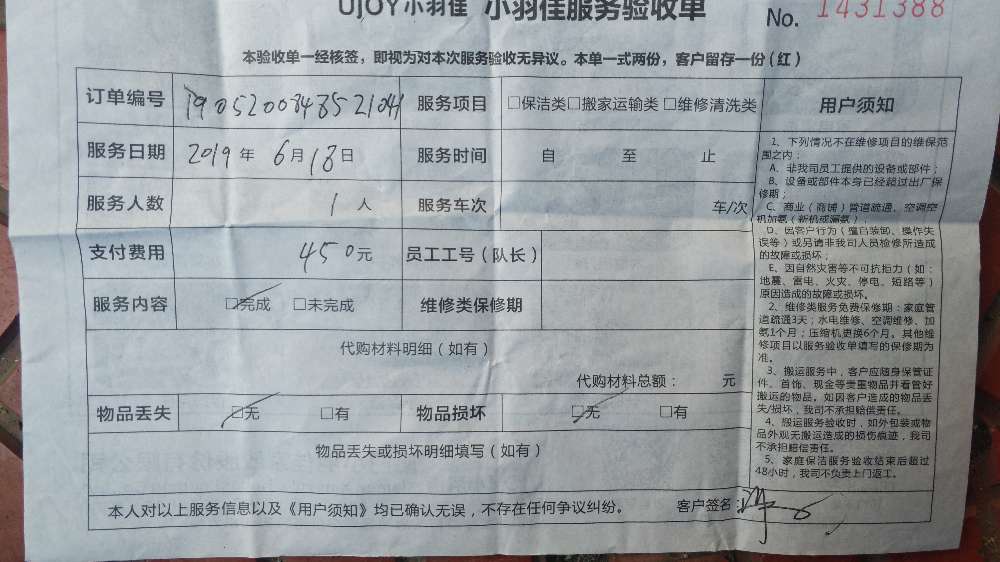 UJOY小羽佳 小羽佳服务验收单 No. 1431388
本验收单一经核签，即视为对本次服务验收无异议。本单一式两份，客户留存一份(红)
订单编号 服务项目 □保洁类□搬家运输类□维修清洗类
服务日期 2019 年 6 月 18 日 服务时间 自 至 止
服务人数 1 人 服务车次 车/次
支付费用 450 元 员工工号（队长）
服务内容 □完成 □未完成 维修类保修期
代购材料明细（如有）
代购材料总额： 元
物品丢失 □无 □有 物品损坏 □无 □有
物品丢失或损坏明细填写（如有）
本人对以上服务信息以及《用户须知》均已确认无误，不存在任何争议纠纷。 客户签名:
用户须知
1、下列情况不在维修项目的维保范
围之内：
A、非我司员工提供的设备或部件；
B、设备或部件本身已经超过出厂保
修期；
C、商业（商铺）管道疏通、空调空
机加氨（新机或漏氨）；
D、因客户行为（擅自装卸、操作失
误等）或另请非我司人员检修所造成
的故障或损坏；
E、因自然灾害等不可抗拒力（如：
地震、雷电、火灾、停电、短路等）
原因造成的故障或损坏。
2、维修类服务免费保修期：家庭管
道疏通3天；水电维修、空调维修、加
氨1个月；压缩机更换6个月。其他维
修项目以服务验收单填写的保修期为
准。
3、搬运服务中，客户应随身保管证
件、首饰、现金等贵重物品并看管好
搬运的物品。如因客户造成的物品丢
失/损坏，我司不承担赔偿责任。
4、搬运服务验收时，如外包装或物
品外观无搬运造成的损伤痕迹，我司
不承担赔偿责任。
5、家庭保洁服务验收结束后超过
48小时，我司不负责上门返工。